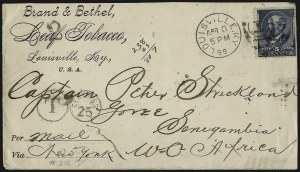 Brand & Bethel,
Leaf Tobacco,
Louisville, Ky.
U.S.A.
LOUISVILLE, KY.
APR
5 PM
Captain Peter Strickland
Goree
Senegambia
Per mail
Via New York W. O. Africa
T
25
5